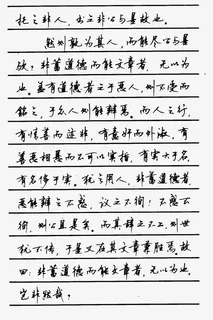 托之非人，书之非公与是故也。
然则孰为其人，而能尽公与是
欤？非畜道德而能文章者，无以为
也。盖有道德者之于恶人，则不受而
铭之，于众人则能辨焉。而人之行，
有情善而迹非，有意奸而外淑，有
善恶相悬而不可以实指，有实大于名，
有名侈于实。犹之用人，非畜道德者，
恶能辨之不惑，议之不徇？不惑不
徇，则公且是矣。而其辞之不工，则世
犹不传，于是又在其文章兼胜焉。故
曰：非畜道德而能文章者，无以为也，
岂非然哉？